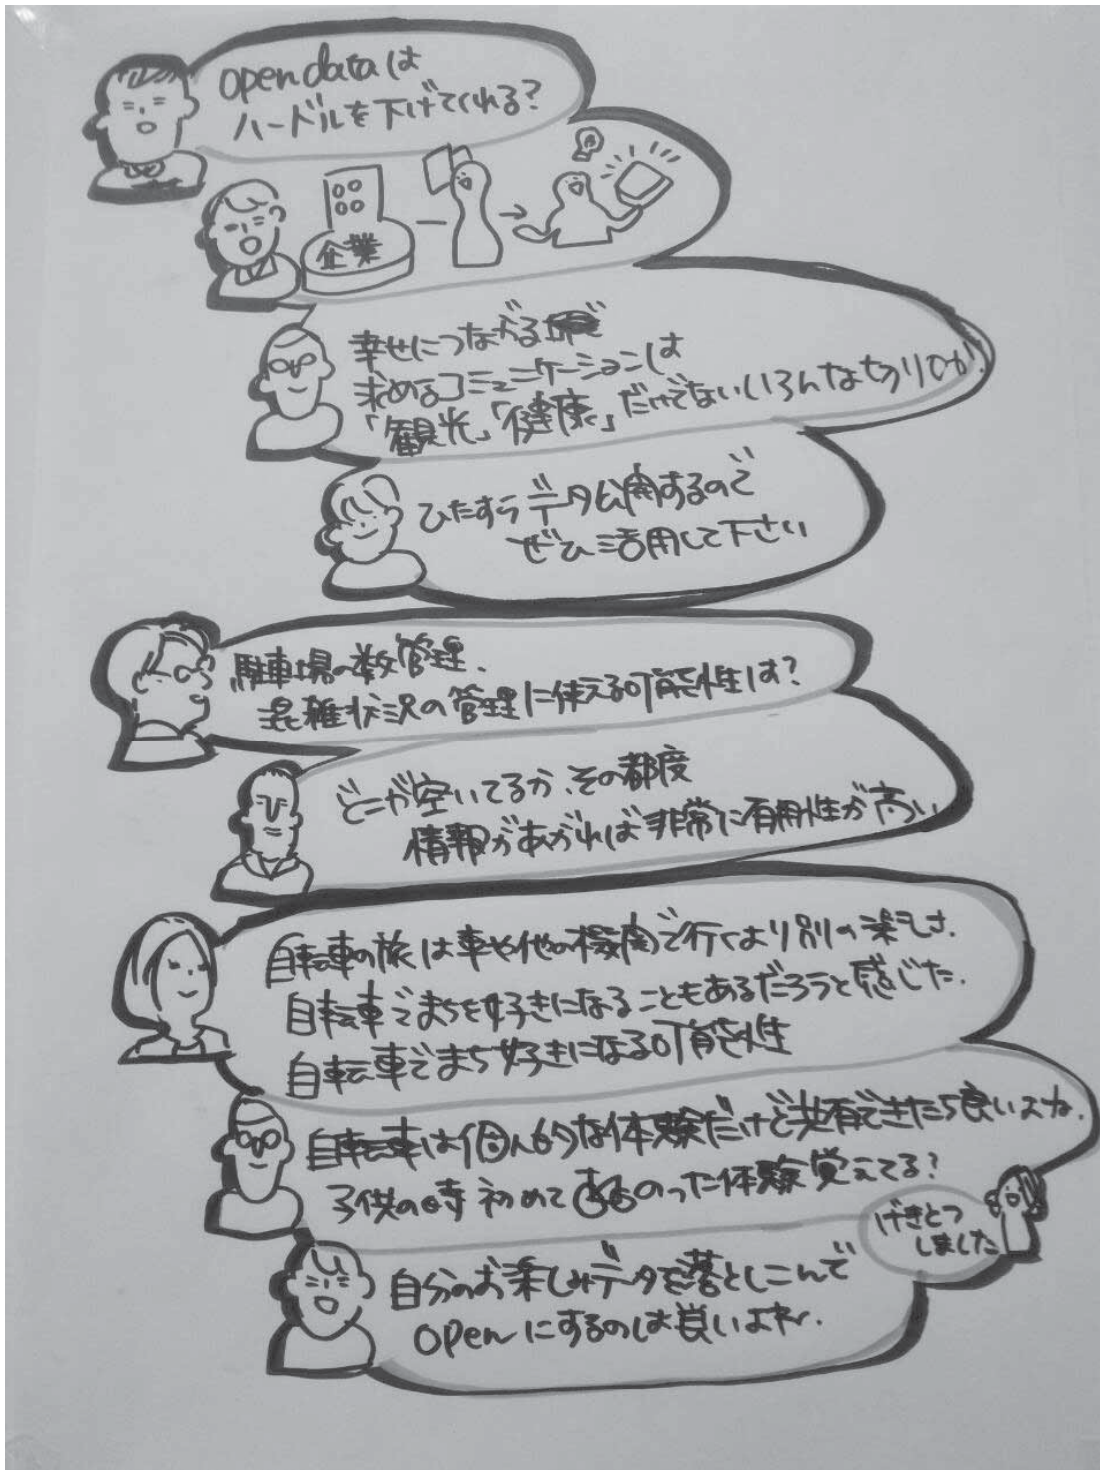 open dataは
ハードルを下げてくれる?
企業
幸せにつながる
求めるコミュニケーションは
「観光」「健康」だけでないいろんな切り口が
ひたすらデータ公開するので
ぜひ活用して下さい
駐車場の数管理、
混雑状況の管理に使える可能性は?
どこが空いてるか、その都度
情報があがれば非常に有用性が高い
自転車の旅は車や他の機関で行くより別の楽しさ.
自転車でまちを好きになることもあるだろうと感じた.
自転車でまち好きになる可能性
自転車は個人的な体験だけど共有できたら良いよね.
子供の時 初めて のった体験覚えてる?
げきとつ
しました
自分のお楽しみデータを落としこんで
openにするのは良いよね.